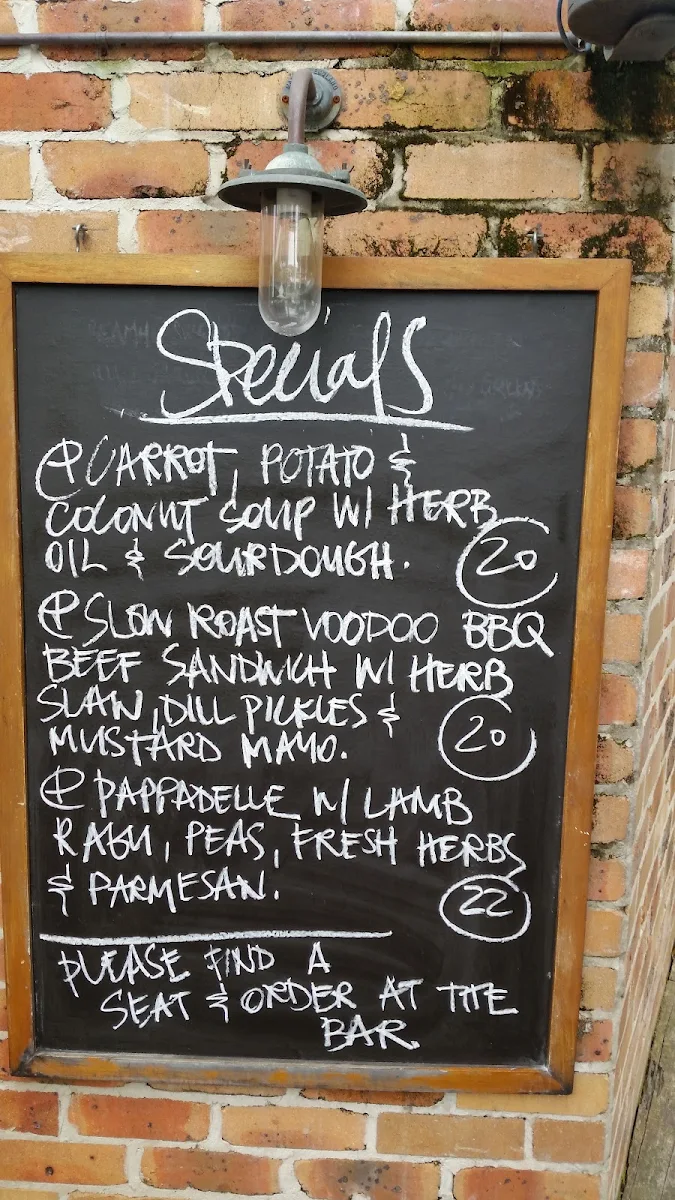 Specials
CARROT, POTATO &
COCONUT SOUP W/ HERB
OIL & SOURDOUGH.
20
SLOW ROAST VOODOO BBQ
BEEF SANDWICH W/ HERB
SLAW, DILL PICKLES &
MUSTARD MAYO.
20
PAPPADELLE W/ LAMB
RAGU, PEAS, FRESH HERBS
& PARMESAN.
22
PLEASE FIND A
SEAT & ORDER AT THE
BAR